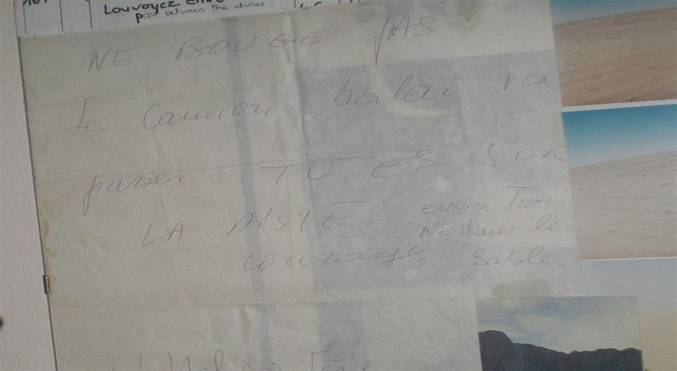 Louvoyez entre
pass between the dunes
NE BOUGE PAS
Le camion balai va
passer TU ES SUR
LA PISTE ecris Ton
N° dans le
courage sable